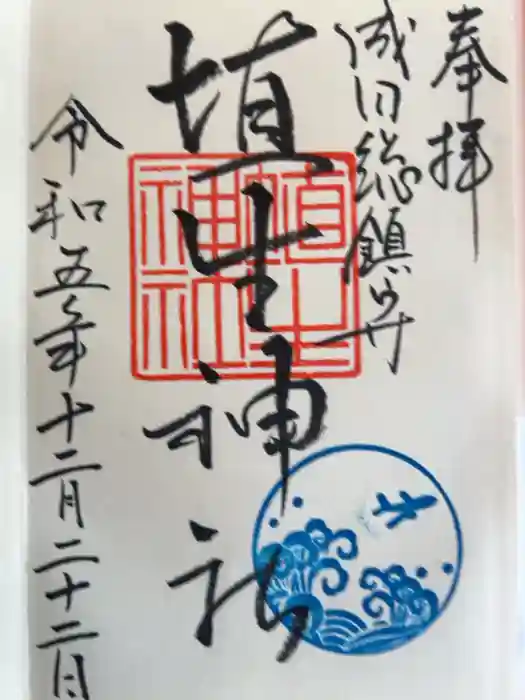 奉拝
成田総鎮守
埴生神社
埴生神社
令和五年十二月二十二日